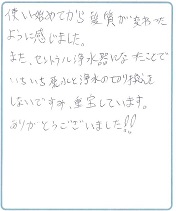 使い始めてから髪質が変わった
ように感じました。
また、セントラル浄水器になったことで
いちいち原水と浄水の切り替え
しないですみ、重宝しています。
ありがとうございました!!